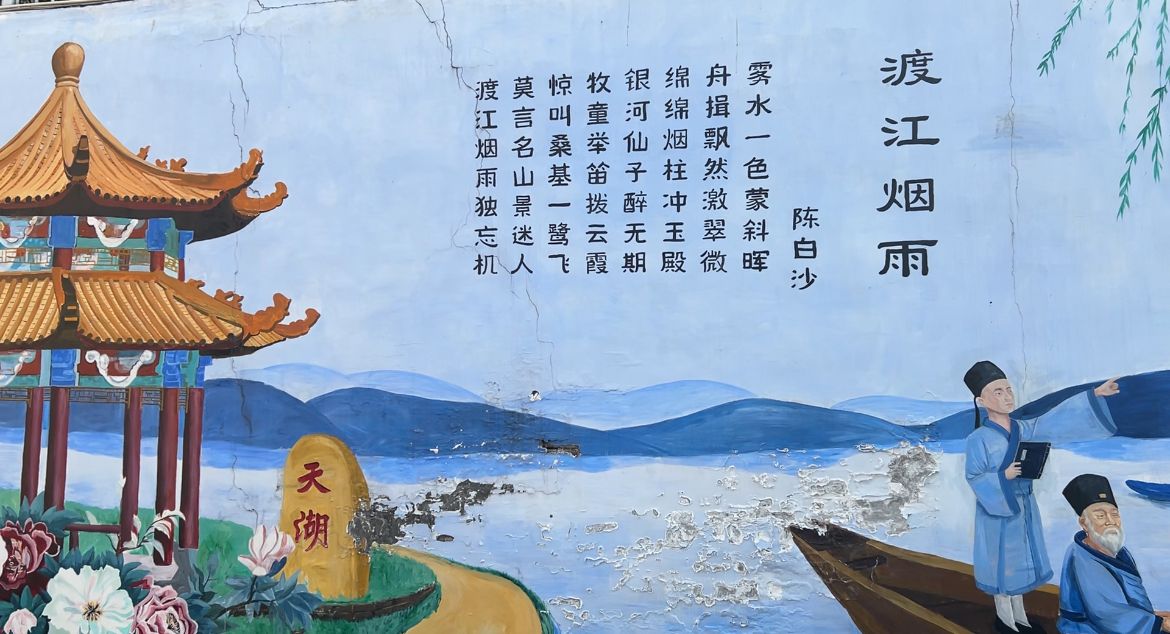 渡江烟雨
陈白沙
雾水一色蒙斜晖
舟揖飘然激翠微
绵绵烟柱冲玉殿
银河仙子醉无期
牧童举笛拨云霞
惊叫桑基一鹭飞
莫言名山景迷人
渡江烟雨独忘机
天湖